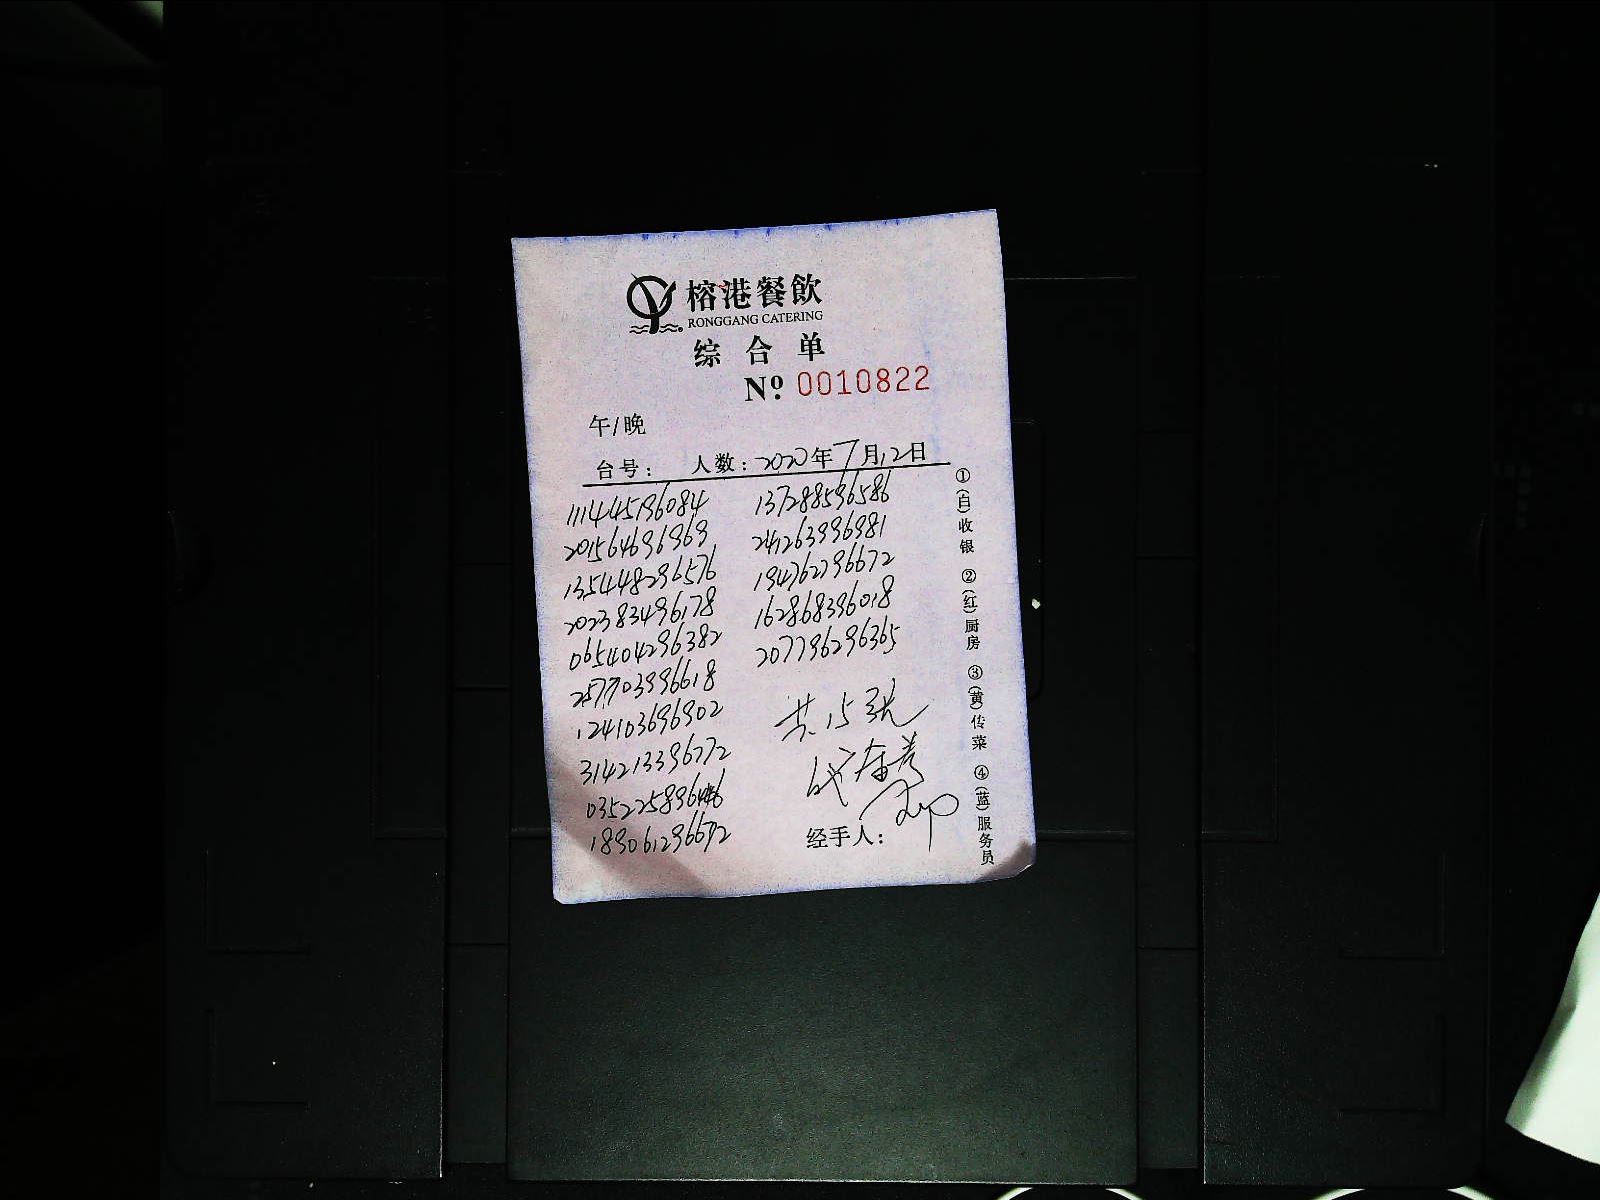 榕港餐飲
RONGGANG CATERING
综合单
Nº 0010822
午/晚
台号： 人数：2020年7月12日
111445196084 137288596586
201564696969 241263996981
135448296576 194762796672
202383496178 162868396018
065404296382 207796296365
257703996618
124103696902
314213396772
189061296672
共15张
经手人：
①(白)收银 ②(红)厨房 ③(黄)传菜 ④(蓝)服务员